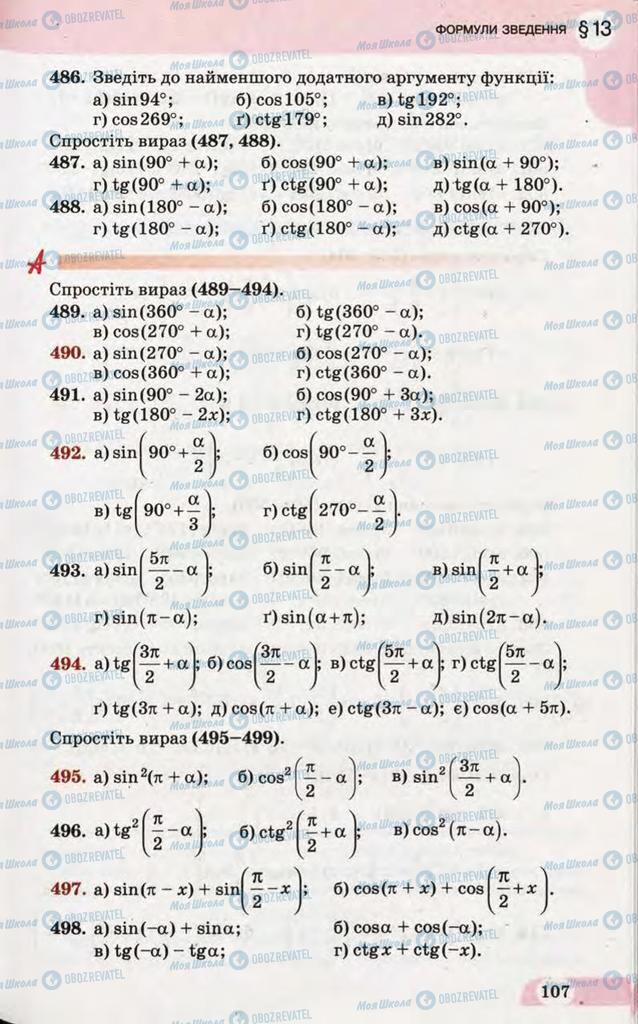 ФОРМУЛИ ЗВЕДЕННЯ §13
486. Зведіть до найменшого додатного аргументу функції:
а) sin94°; б) cos105°; в) tg192°;
г) cos269°; ґ) ctg179°; д) sin282°.
Спростіть вираз (487, 488).
487. а) sin(90° + α); б) cos(90° + α); в) sin(α + 90°);
г) tg(90° + α); ґ) ctg(90° + α); д) tg(α + 180°).
488. а) sin(180° − α); б) cos(180° − α); в) cos(α + 90°);
г) tg(180° − α); ґ) ctg(180° − α); д) ctg(α + 270°).
А
Спростіть вираз (489–494).
489. а) sin(360° − α); б) tg(360° − α);
в) cos(270° + α); г) tg(270° − α).
490. а) sin(270° − α); б) cos(270° − α);
в) cos(360° + α); г) ctg(360° − α).
491. а) sin(90° − 2α); б) cos(90° + 3α);
в) tg(180° − 2x); г) ctg(180° + 3x).
492. а) sin(90° + α/2); б) cos(90° − α/2);
в) tg(90° + α/3); г) ctg(270° − α/2).
493. а) sin(5π/2 − α); б) sin(π/2 − α); в) sin(π/2 + α);
г) sin(π − α); ґ) sin(α + π); д) sin(2π − α).
494. а) tg(3π/2 + α); б) cos(3π/2 − α); в) ctg(5π/2 + α); г) ctg(5π/2 − α);
ґ) tg(3π + α); д) cos(π + α); е) ctg(3π − α); є) cos(α + 5π).
Спростіть вираз (495–499).
495. а) sin²(π + α); б) cos²(π/2 − α); в) sin²(3π/2 + α).
496. а) tg²(π/2 − α); б) ctg²(π/2 + α); в) cos²(π − α).
497. а) sin(π − x) + sin(π/2 − x); б) cos(π + x) + cos(π/2 + x).
498. а) sin(−α) + sinα; б) cosα + cos(−α);
в) tg(−α) − tgα; г) ctgx + ctg(−x).
107
Моя Школа OBOZREVATEL